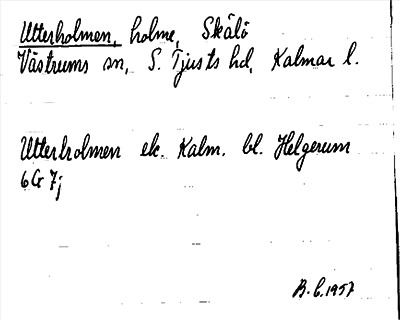 Utterholmen, holme, Skälö
Västrums sn, S. Tjusts hd, Kalmar l.
Utterholmen ek. Kalm. bl. Helgerum
6G 7j
B. L. 1957